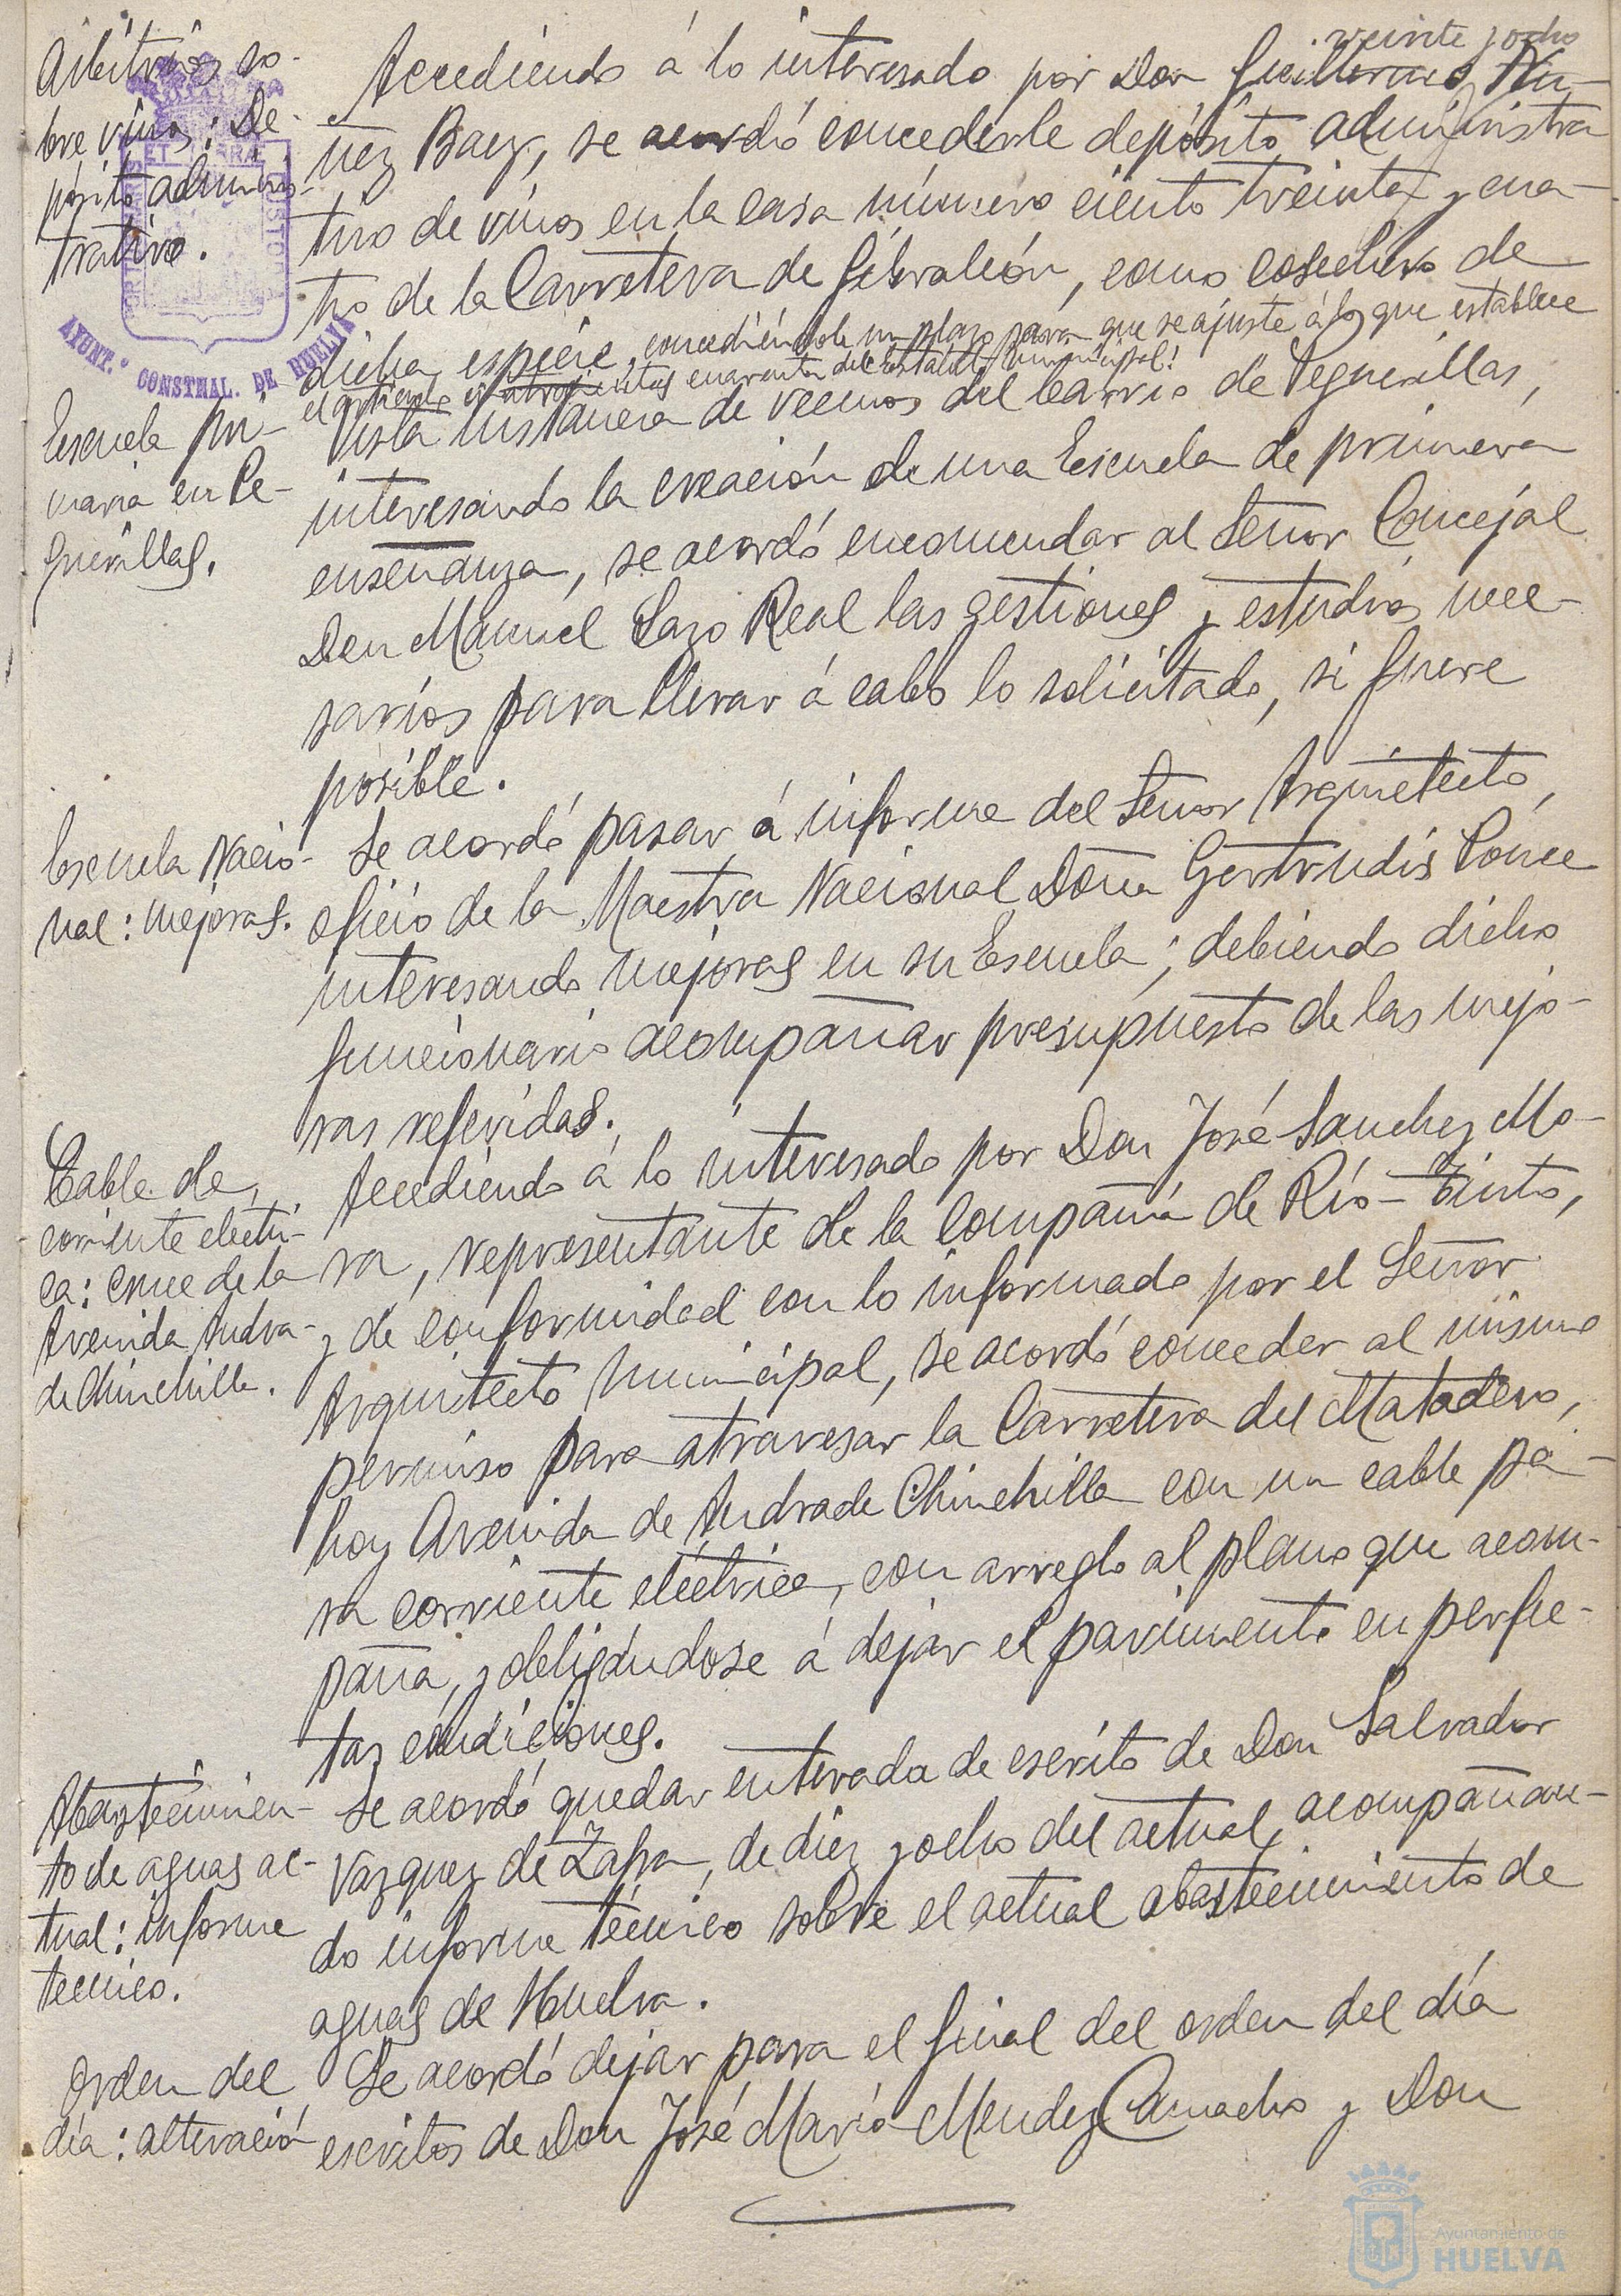 veinte y ocho
Arbitrios so-
bre vinos: De-
pósito adminis-
trativo.
Accediendo á lo interesado por Don Guillermo Nu-
ñez Baez, se acordó concederle depósito administra
tivo de vinos en la casa número ciento treinta y cua-
tro de la Carretera de Gibraleón, como cosechero de
dicha especie, concediéndole un plazo para que se ajuste á lo que establece
el artículo cuatrocientos cuarenta del Estatuto municipal.
Escuela pri-
maria en Pe-
guerillas.
Vista instancia de vecinos del barrio de Peguerillas,
interesando la creación de una Escuela de primera
enseñanza, se acordó encomendar al Señor Concejal
Don Manuel Lazo Real las gestiones y estudios nece-
sarios para llevar á cabo lo solicitado, si fuere
posible.
Escuela Nacio-
nal: mejoras.
Se acordó pasar á informe del Señor Arquitecto,
oficio de la Maestra Nacional Doña Gertrudis Ponce
interesando mejoras en su Escuela; debiendo dicho
funcionario acompañar presupuesto de las mejo-
ras referidas.
Cable de
corriente eléctri-
ca: cruce de la
Avenida Andra-
de Chinchilla.
Accediendo á lo interesado por Don José Sanchez Mo-
ra, representante de la Compañía de Río-Tinto,
y de conformidad con lo informado por el Señor
Arquitecto Municipal, se acordó conceder al mismo
permiso para atravesar la Carretera del Matadero,
hoy Avenida de Andrade Chinchilla con un cable pa-
ra corriente eléctrica, con arreglo al plano que acom-
paña, y obligándose á dejar el pavimento en perfec-
tas condiciones.
Abastecimien-
to de aguas ac-
tual: informe
técnico.
Se acordó quedar enterada de escrito de Don Salvador
Vazquez de Zafra, de diez y ocho del actual, acompañan-
do informe técnico sobre el actual abastecimiento de
aguas de Huelva.
Orden del
día: alteración
Se acordó dejar para el final del orden del día
escritos de Don José María Mendez Camacho y Don
AYUNT.º CONSTNAL. DE HUELVA
PORTUS MARIS ET TERRAE CUSTODIA
Ayuntamiento de
HUELVA